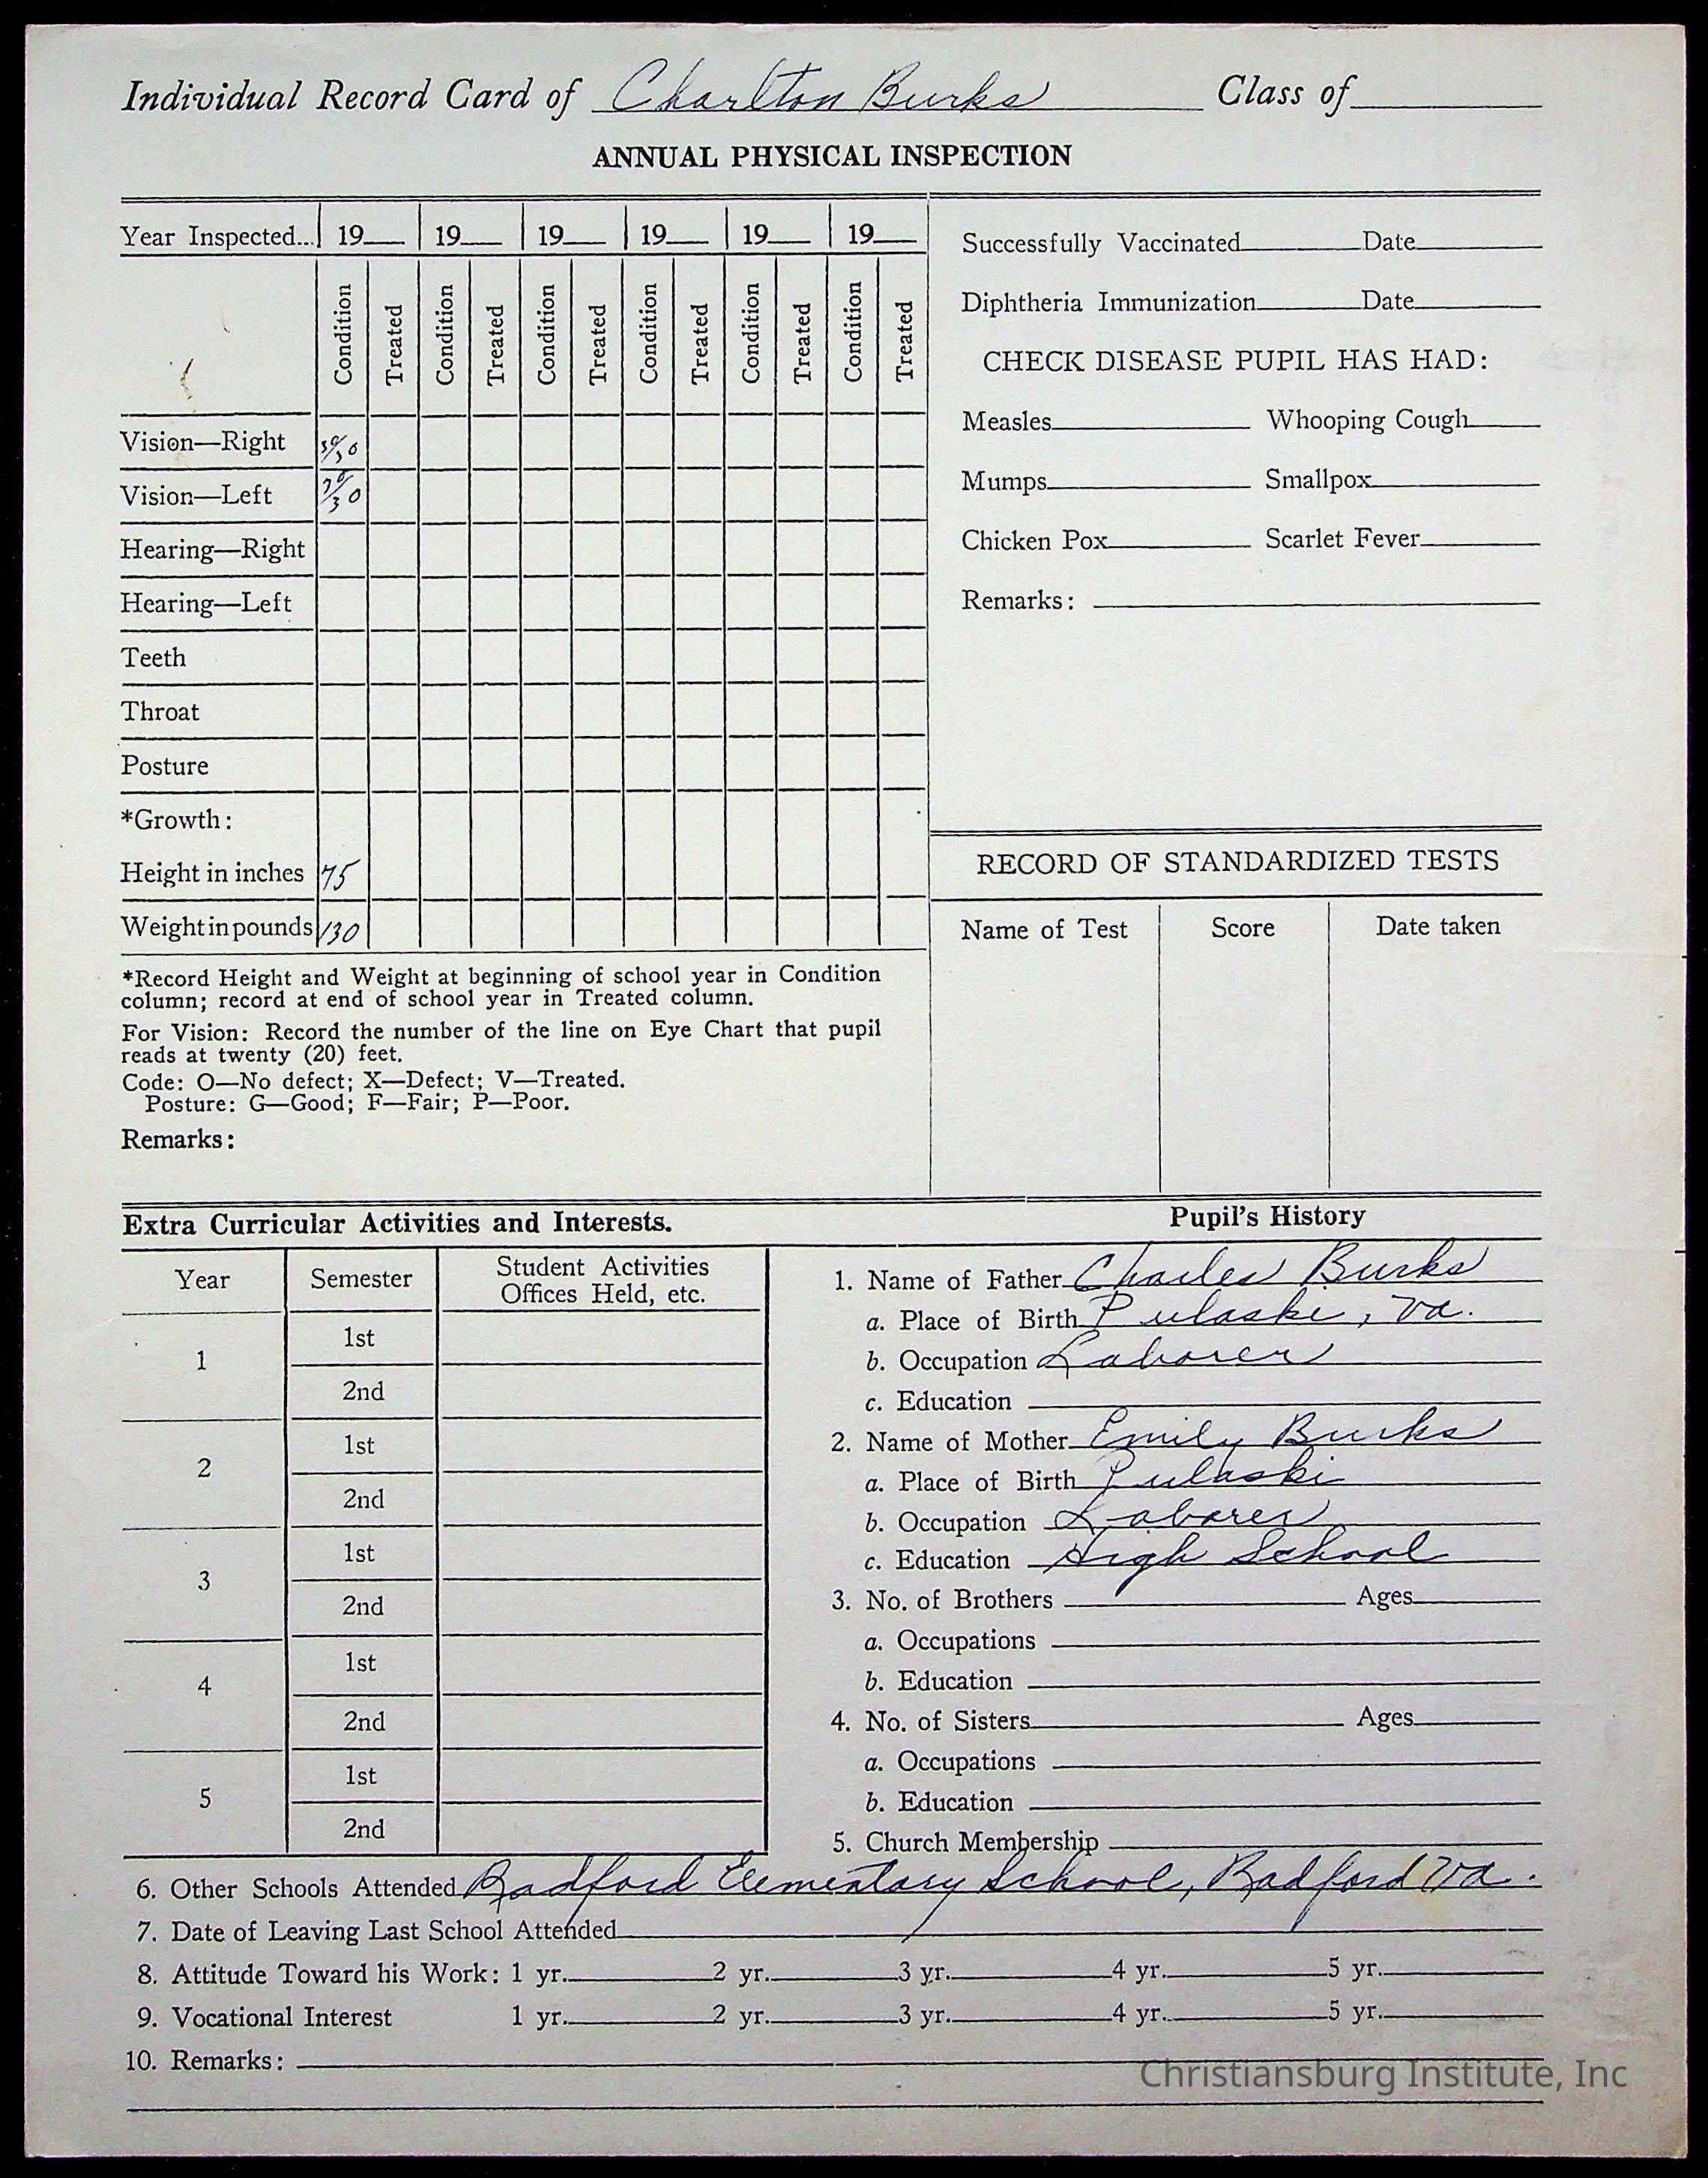 Individual Record Card of Charlton Burks Class of
ANNUAL PHYSICAL INSPECTION
Year Inspected... 19 19 19 19 19 19
Condition Treated Condition Treated Condition Treated Condition Treated Condition Treated Condition Treated
Vision—Right
Vision—Left
Hearing—Right
Hearing—Left
Teeth
Throat
Posture
*Growth:
Height in inches 75
Weight in pounds 130
*Record Height and Weight at beginning of school year in Condition
column; record at end of school year in Treated column.
For Vision: Record the number of the line on Eye Chart that pupil
reads at twenty (20) feet.
Code: O—No defect; X—Defect; V—Treated.
Posture: G—Good; F—Fair; P—Poor.
Remarks:
Successfully Vaccinated Date
Diphtheria Immunization Date
CHECK DISEASE PUPIL HAS HAD:
Measles Whooping Cough
Mumps Smallpox
Chicken Pox Scarlet Fever
Remarks:
RECORD OF STANDARDIZED TESTS
Name of Test Score Date taken
Extra Curricular Activities and Interests.
Year Semester Student Activities
Offices Held, etc.
1 1st
2nd
2 1st
2nd
3 1st
2nd
4 1st
2nd
5 1st
2nd
Pupil's History
1. Name of Father Charles Burks
a. Place of Birth Pulaski, Va.
b. Occupation Laborer
c. Education
2. Name of Mother Emily Burks
a. Place of Birth Pulaski
b. Occupation Laborer
c. Education High School
3. No. of Brothers Ages
a. Occupations
b. Education
4. No. of Sisters Ages
a. Occupations
b. Education
5. Church Membership
6. Other Schools Attended Radford Elementary School, Radford Va.
7. Date of Leaving Last School Attended
8. Attitude Toward his Work: 1 yr. 2 yr. 3 yr. 4 yr. 5 yr.
9. Vocational Interest 1 yr. 2 yr. 3 yr. 4 yr. 5 yr.
10. Remarks:
Christiansburg Institute, Inc